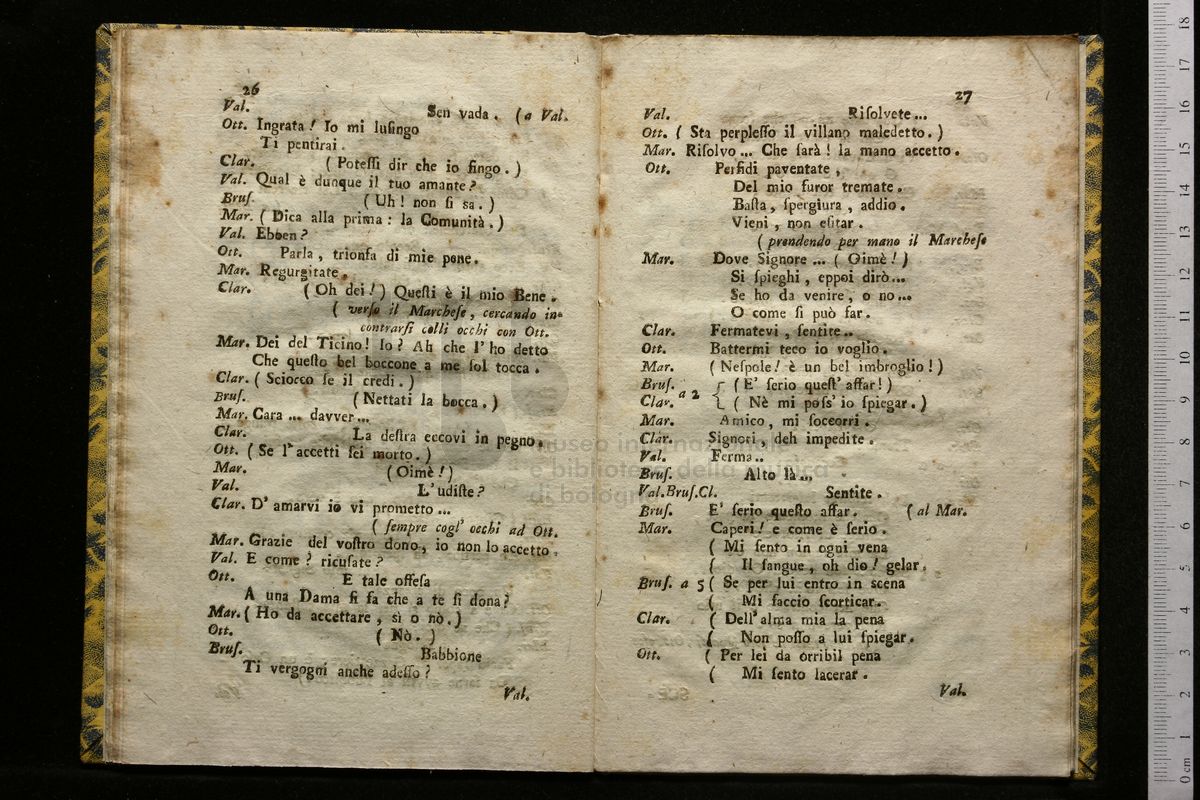 26
Val. Sen vada. (a Val.
Ott. Ingrata! Io mi luſingo
Ti pentirai.
Clar. (Poteſſi dir che io fingo.)
Val. Qual è dunque il tuo amante?
Bruſ. (Uh! non ſi sa.)
Mar. (Dica alla prima: la Comunità.)
Val. Ebben?
Ott. Parla, trionfa di mie pene.
Mar. Regurgitate.
Clar. (Oh dei!) Queſti è il mio Bene.
(verſo il Marcheſe, cercando in-
contrarſi colli occhi con Ott.
Mar. Dei del Ticino! Io? Ah che l'ho detto
Che queſto bel boccone a me ſol tocca.
Clar. (Sciocco ſe il credi.)
Bruſ. (Nettati la bocca.)
Mar. Cara ... davver...
Clar. La deſtra eccovi in pegno.
Ott. (Se l'accetti ſei morto.)
Mar. (Oimè!)
Val. L'udiſte?
Clar. D'amarvi io vi prometto ...
(ſempre cogl' occhi ad Ott.
Mar. Grazie del voſtro dono, io non lo accetto.
Val. E come? ricuſate?
Ott. E tale offeſa
A una Dama ſi fa che a te ſi dona?
Mar. (Ho da accettare, sì o nò.)
Ott. (Nò.)
Bruſ. Babbione
Ti vergogni anche adeſſo?
Val.
27
Val. Riſolvete...
Ott. (Sta perpleſſo il villano maledetto.)
Mar. Riſolvo ... Che ſarà! la mano accetto.
Ott. Perfidi paventate,
Del mio furor tremate.
Baſta, ſpergiura, addio.
Vieni, non eſitar.
(prendendo per mano il Marcheſe
Mar. Dove Signore ... (Oimè!)
Si ſpieghi, eppoi dirò...
Se ho da venire, o no...
O come ſi può far.
Clar. Fermatevi, ſentite..
Ott. Battermi teco io voglio.
Mar. (Neſpole! è un bel imbroglio!)
Bruſ. a 2 { (E' ſerio queſt' affar!)
Clar. { (Nè mi poſs'io ſpiegar.)
Mar. Amico, mi ſoccorri.
Clar. Signori, deh impedite.
Val. Ferma..
Bruſ. Alto là...
Val.Bruſ.Cl. Sentite.
Bruſ. E' ſerio queſto affar. (al Mar.
Mar. Caperi! e come è ſerio.
(Mi ſento in ogni vena
( Il ſangue, oh dio! gelar.
Bruſ. a 5 (Se per lui entro in scena
( Mi faccio ſcorticar.
Clar. (Dell'alma mia la pena
( Non poſſo a lui ſpiegar.
Ott. (Per lei da orribil pena
( Mi ſento lacerar.
Val.
museo internazionale
e biblioteca della musica
di bologna
0 cm 1 2 3 4 5 6 7 8 9 10 11 12 13 14 15 16 17 18